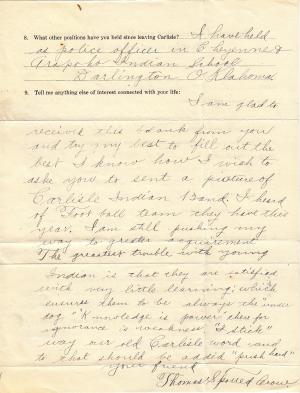 8. What other positions have you held since leaving Carlisle? I have held
as police officer in Cheyenne &
Arapaho Indian School
Darlington Oklahoma
9. Tell me anything else of interest connected with your life:
I am glad to
received this blank from you
and try my best to fill out the
best I know how I wish to
ask you to sent a picture of
Carlisle Indian Band. I heard
of Foot ball team they have this
year. I am still pushing my
way to greater acquirement
The greatest trouble with young
Indian is that they are satisfied
with very little learning; which
causes them to be always the "under
dog" "Knowledge is power" there for
ignorance is weakness. "I stick"
was our old Carlisle word and
to that should be added "push hard"
your friend
Thomas Spotted Crow